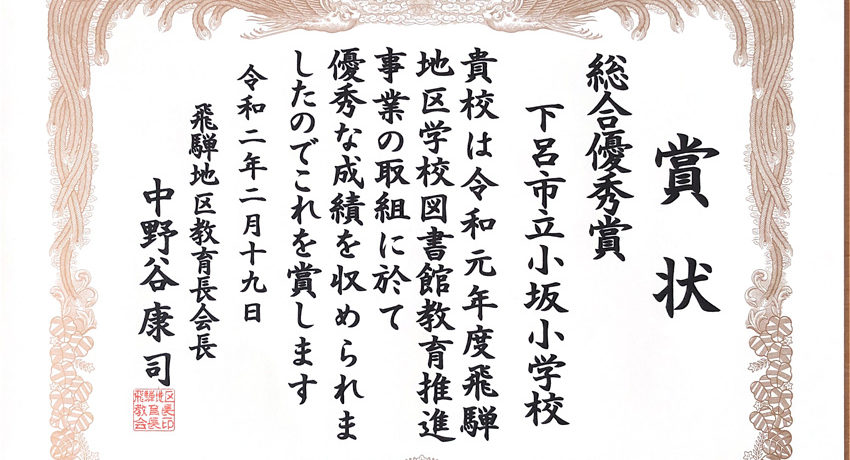 賞状
総合優秀賞
下呂市立小坂小学校
貴校は令和元年度飛騨
地区学校図書館教育推進
事業の取組に於て
優秀な成績を収められま
したのでこれを賞します
令和二年二月十九日
飛騨地区教育長会長
中野谷康司